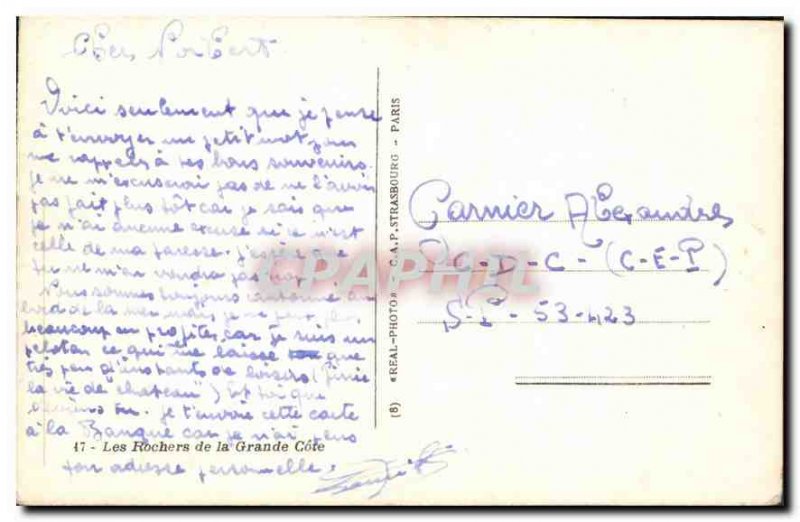 Cher Norbert
Voici seulement que je pense
à t'envoyer un petit mot pour
me rappeler à tes bons souvenirs.
Je ne m'excuserai pas de ne l'avoir
pas fait plus tôt car je sais que
je n'ai aucune excuse si ce n'est
celle de ma paresse. J'espère que
tu ne m'en voudra pas
Nous sommes toujours au
bord de la mer mais je ne peux plus
beaucoup en profiter car je suis un
peloton ce qui me laisse que
très peu d'instants de loisirs (finie
la vie de "chateau") Et toi que
deviens tu. Je t'envoie cette carte
à la Banque car je n'ai plus
ton adresse personnelle.
17 - Les Rochers de la Grande Côte
(8) « REAL-PHOTO » C.A.P. STRASBOURG - PARIS
CPAPHIL
Garnier Alexandre
C-D-C- (C-E-P)
S-P- 53-423